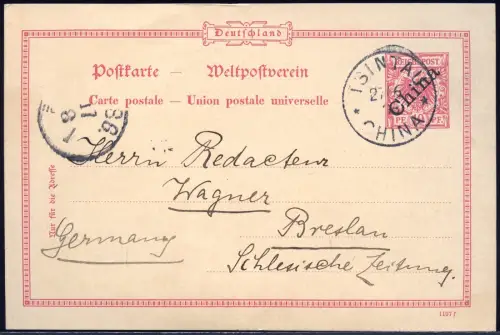 Deutschland
Postkarte — Weltpostverein
Carte postale — Union postale universelle
REICHSPOST
China
PF
PF
TSINTAU
CHINA
1
8
11
98
Nur für die Adresse
Herrn Redacteur
Wagner
Breslau
Germany
Schlesische Zeitung.
1197 f